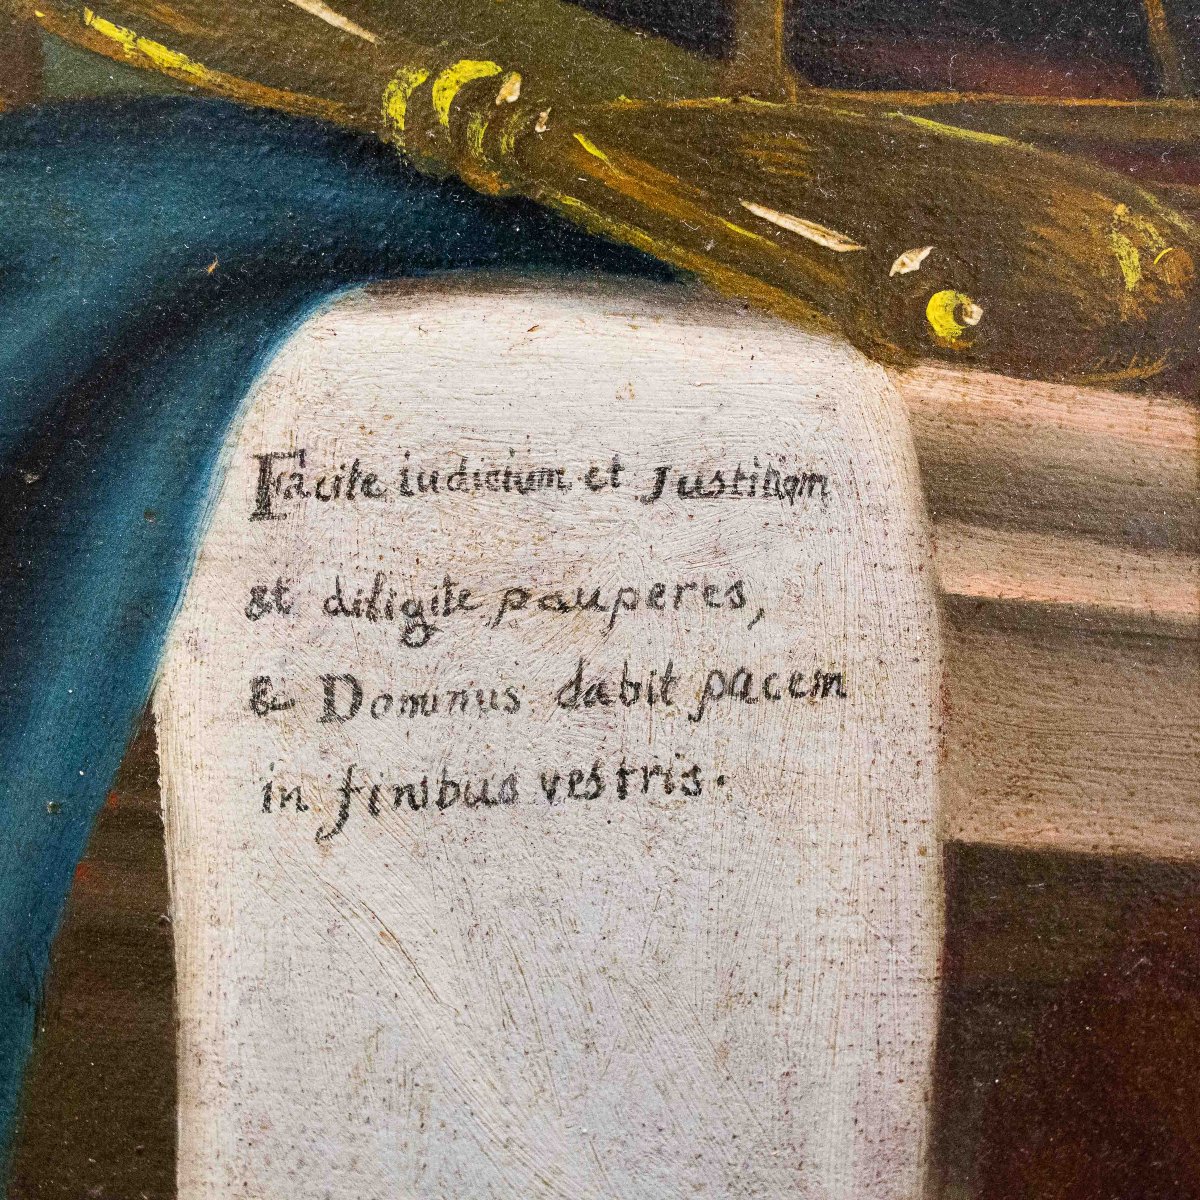 Facite iudicium et Justitiam
et diligite pauperes,
& Dominus dabit pacem
in finibus vestris.